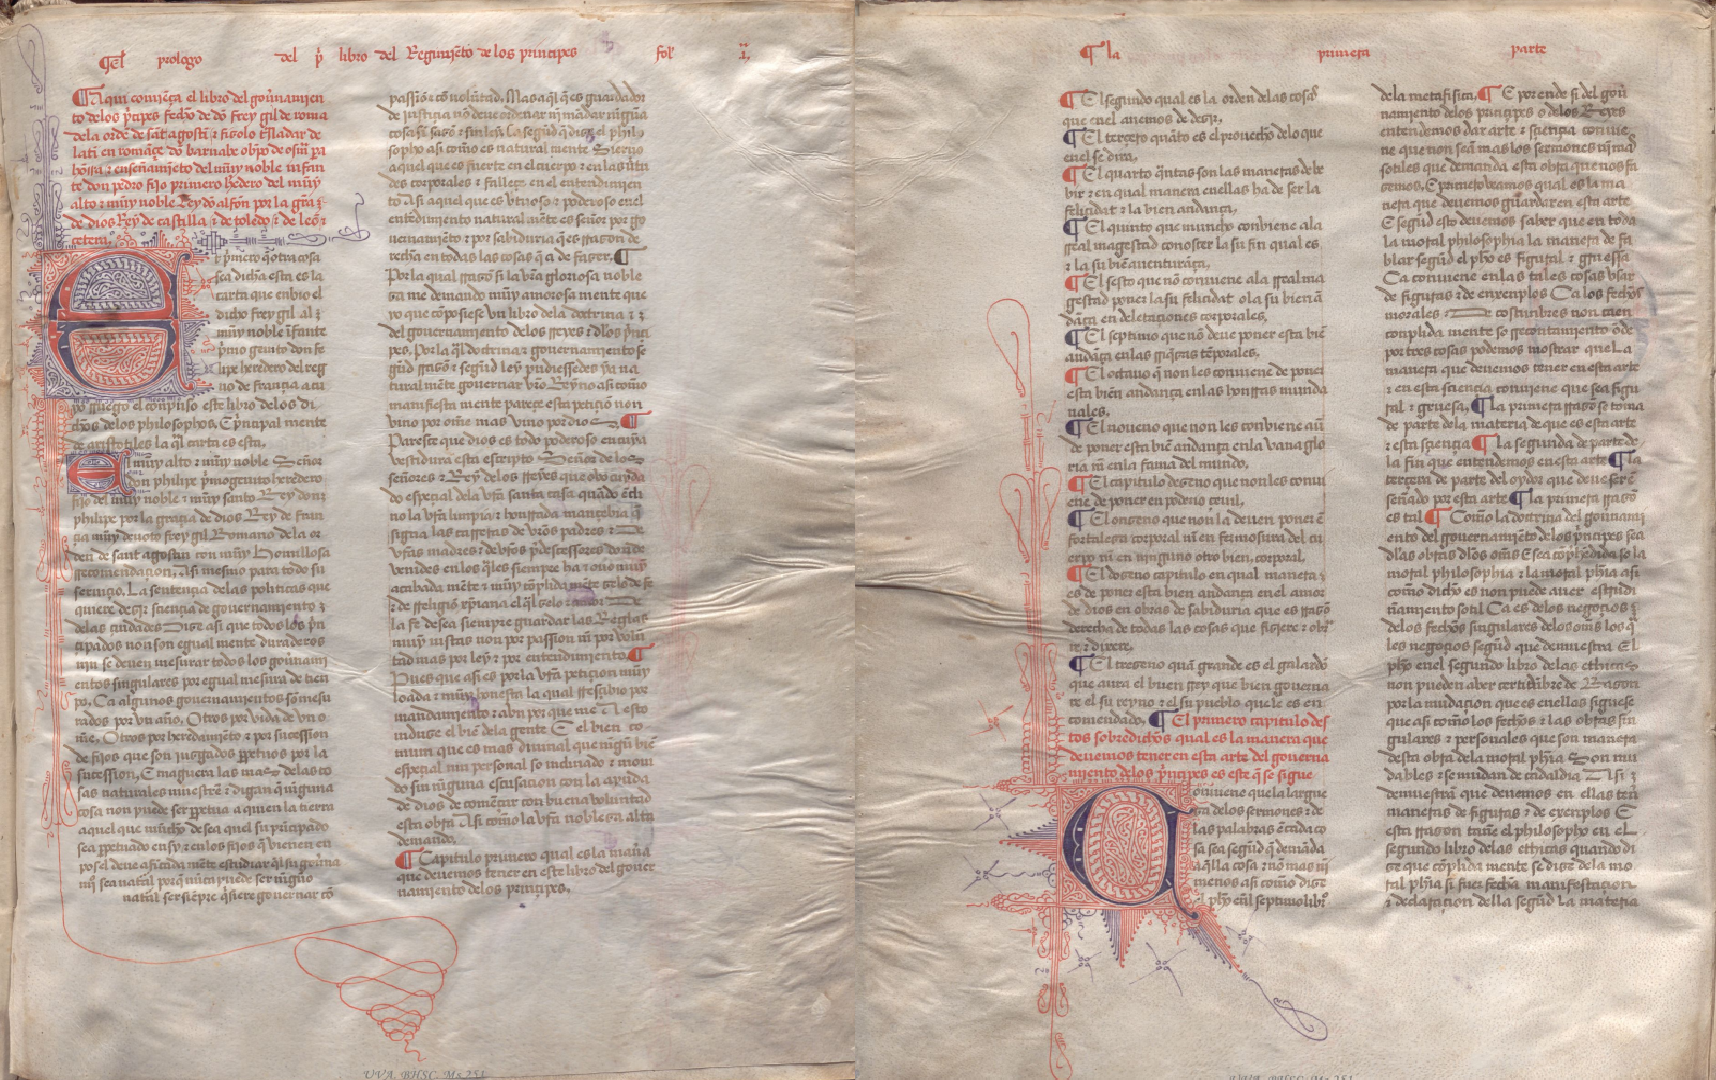 ¶ El prologo del pͥ libro del Regimiẽto de los principes fol' .i.
¶ Aqui comiẽça el libro del gou̾namien
to delos pͥncipes fecho de dõ frey gil de roma
dela ordẽ de sãt agostĩ ⁊ fizolo tͣsladar de
latĩ en romãçe dõ barnabe obpo de osm̃ pa
hõrra ⁊ enseñamiẽto del muy noble infan
te don pedro fijo primero hͤdero del muy
alto ⁊ muy noble Rey dõ alfõn por la grͣa ⁊
de dios Rey de castilla ⁊ de toledo ⁊ de leõ ⁊
cetera.
E pͥmero q̃ otra cosa
sea dicha esta es la
carta que enbio el
dicho frey gil al ⁊
muy noble ĩfante
pͥmo genito don fe
lipe heredero del reg
no de françia a cu
yo rruego el conpuso este libro delos di
chos delos philosophos. E pͥnçipal mente
de aristotiles la q̃l carta es esta.
Al muy alto ⁊ muy noble Señor
don philipe pͥmogenito heredero
fijo del muy noble ⁊ muy santo Rey don ⁊
philipe por la graçia de dios Rey de fran
çia muy deuoto frey gil Romano dela or
den de sant agostin con muy homillosa
recomendaçion. Asi mesmo para todo su
seruiçio. La sentençia delas politicas que
quiere dezir sciençia de gouernamiento ⁊
delas çiudades dize asi que todos los pͥn
çipados non son egual mente duraderos
nin se deuen mesurar todos los gou̾nami
entos singulares por egual mesura de tien
po. Ca algunos gouernamientos son mesu
rados por vn año. Otros por vida de vn o
m̃e. Otros por heredamiẽto ⁊ por suçession
de fijos que son juzgados ꝑpetuos por la
suçession. E maguera las mas delas co
sas naturales muestrẽ ⁊ digan q̃ ninguna
cosa non puede ser ꝑpetua a quien la tierra
aquel que mucho desea quel su prinçipado
sea ꝑpetuado en sy ⁊ en los fijos q̃ vienen en
pos el deue afincada mẽte estudiar q̃l su gou̾na
miẽto sea natͣl porq̃ nũca puede ser ninguno
natͣl ser siẽpre q̃siere gouernar cõ
passiõ ⁊ cõ volũtad. Mas aq̃l q̃ es guardador
de justiçia nõ deue ordenar nĩ mãdar ningũa
cosa sĩ razõ ⁊ sin ley. Ca segũd q̃ dize el phil-
sopho asi como es natural mente Sieruo
aquel que es fuerte en el cuerpo ⁊ en las v̾tu
des corporales ⁊ falleçe en el entendimien
to Asi aquel que es v̾tuoso ⁊ poderoso en el
entẽdimiento natural mẽte es señor por go
uernamiẽto ⁊ por sabiduria q̃ es rrazon de
recha en todas las cosas q̃ a de fazer. ¶
Por la qual rrazõ si la vr̃a gloriosa noble
za me demando muy amorosa mente que
yo que cõposiese vn libro dela doctrina ⁊ ⁊
del gouernamiento delos rreyes ⁊ dlos pͥnçi
pes. Por la q̃l doctrina ⁊ gouernamiẽto se
gũd rrazõ ⁊ segũd ley pudiessedes ya na
tural mẽte gouernar vr̃o Reyno asi como
manifiesta mente pareçe esta petiçiõ non
vino por ome mas vino por dios. ¶
Paresçe que dios es todo poderoso en cuya
vestidura esta escripto Señor de los
señores ⁊ Rey delos rreyes que ouo cuyda
do espeçial dela vr̃a santa casa quãdo ẽcli
no la vr̃a limpia ⁊ honrrada mançebia q̃
sigua las carreras de vr̃os padres ⁊ De
vr̃as madres ⁊ de vr̃os pͥdeçessores donde
venides en los q̃les siempre ha ⁊ ouo muy
acabada mẽte ⁊ muy cõplida mẽte zelo de fe
⁊ de rreligiõ xp̃iana el q̃l zelo ⁊ amor De
la fe desea siempre guardar las Reglas
muy iustas non por passion nĩ por volũ
tad mas por ley ⁊ por entendimiento. ¶
Pues que asi es por la vr̃a petiçion muy
loada ⁊ muy honesta la qual rresçibio por
mandamiento ⁊ abn por que me A esto
induze el biẽ dela gente E el bien co
mun que es mas diuinal que ningũ biẽ
espeçial nin personal so inclinado ⁊ moui
do sin ninguna escusaçion con la ayuda
de dios de comẽçar con buena voluntad
esta obrͣ Asi como la vr̃a nobleza alta
demando.
¶ Capitulo primero qual es la manͣa
que deuemos tener en este libro del gouer
namiento delos prinçipes.
UVA. BHSC. Ms 251
¶ la primera parte
¶ El segundo qual es la orden delas cosas
que en el auemos de dezir.
¶ El terçero quãto es el prouecho delo que
en el se dira.
¶ El quarto q̃ntas son las maneras de be
uir ⁊ en qual manera en ellas ha de ser la
feliçidat ⁊ la bien andança.
¶ El quinto que mucho conbiene ala
rreal magestad conosçer la su fin qual es
⁊ la su biẽ auenturãça.
¶ El sesto que nõ conuiene ala rreal ma
gestad poner la su feliçidat o la su bien ã
dãça en delectaçiones corporales.
¶ El septimo que nõ deue poner esta biẽ
andãça en las rriq̃zas tẽporales.
¶ El octauo q̃ non les conuiene de poner
esta biẽn andança en las honrras munda
nales.
¶ El noueno que non les conbiene aũ
de poner esta biẽ andança en la vana glo
ria nĩ en la fama del mundo.
¶ El capitulo dezeno que non les conui
ene de poner en poderio çeuil.
¶ El onzeno que non la deuen poner ẽ
fortaleza corporal nĩ en fermosura del cu
erpo nĩ en ninguno otro bien corporal.
¶ El dozeno capitulo en qual manera ⁊
es de poner esta bien andança en el amor
de dios en obras de sabiduria que es rrazõ
derecha de todas las cosas que fiziere ⁊ obrͣ
re ⁊ dixere.
¶ El trezeno quã grande es el galardõ
que aura el buen rrey que bien gouerna
re el su reyno ⁊ el su pueblo quele es en
comendado. ¶ El primero capitulo des
tos sobredichos qual es la manera que
deuemos tener en esta arte del gouerna
miento delos pͥnçipes es este q̃ se sigue
Conuiene que la largue
za delos sermones ⁊ de
las palabras ẽcada co
sa sea segũd q̃ demãda
aq̃lla cosa ⁊ nõ mas nĩ
menos asi como dize
el pho en el septimo librͦ
dela metafisica. ¶ E por ende si del gou̾
namiento delos prinçipes o delos Reyes
entendemos dar arte ⁊ sçiençia conuie
ne que non seã mas los sermones nĩ mas
sotiles que demanda esta obra que nos fa
zemos. E primero veamos qual es la ma
nera que deuemos guardar en esta arte
E segũd esto deuemos saber que en toda
la moral philosophia la manera de fa
blar segũd el pho es figural ⁊ gruessa
Ca conuiene en las tales cosas vsar
de figuras ⁊ de enxenplos Ca los fechos
morales ⁊ De costunbres non caen
conplida mente so rrecontamiento õde
por tres cosas podemos mostrar que La
manera que deuemos tener en esta arte
⁊ en esta sçiençia conuiene que sea figu
ral ⁊ gruesa. ¶ La primera rrazõ se toma
de parte dela materia de que es esta arte
⁊ esta sçiençia ¶ la segunda de parte de
la fin que entendemos en esta arte ¶ la
terçera de parte del oydor que deue ser ẽ
señado por esta arte ¶ la primera rrazõ
es tal ¶ Como la doctrina del gou̾nami
ento del gouernamiẽto delos pͥnçipes sea
dlas obras dlos om̃s E sea cõphẽdida so la
moral philosophia ⁊ la moral phi̾a asi
como dicho es non puede auer estrudi
ñamiento sotil Ca es delos negoçios ⁊
delos fechos singulares delos om̃s los q̃
les negoçios segũd que demuestra El
pho en el segundo libro delas ethicas
non pueden aber çertidũbre de Razon
por la mudaçion que es en ellas siguese
que asi como los fechos ⁊ las obras sin
gulares ⁊ personales que son manera
desta obra dela moral phi̾a Son mu
dables ⁊ se mudan de cada dia Asi ⁊
demuestrã que deuemos en ellas tener
maneras de figuras ⁊ de exenplos E
esta rrazon tañe el philosopho en eL
segundo libro delas ethicas quando di
ze que cõplida mente se dize dela mo
ral phi̾a si fuer fecha manifestaçion
⁊ declaraçion della segũd la materia
UVA. BHSC. Ms 251